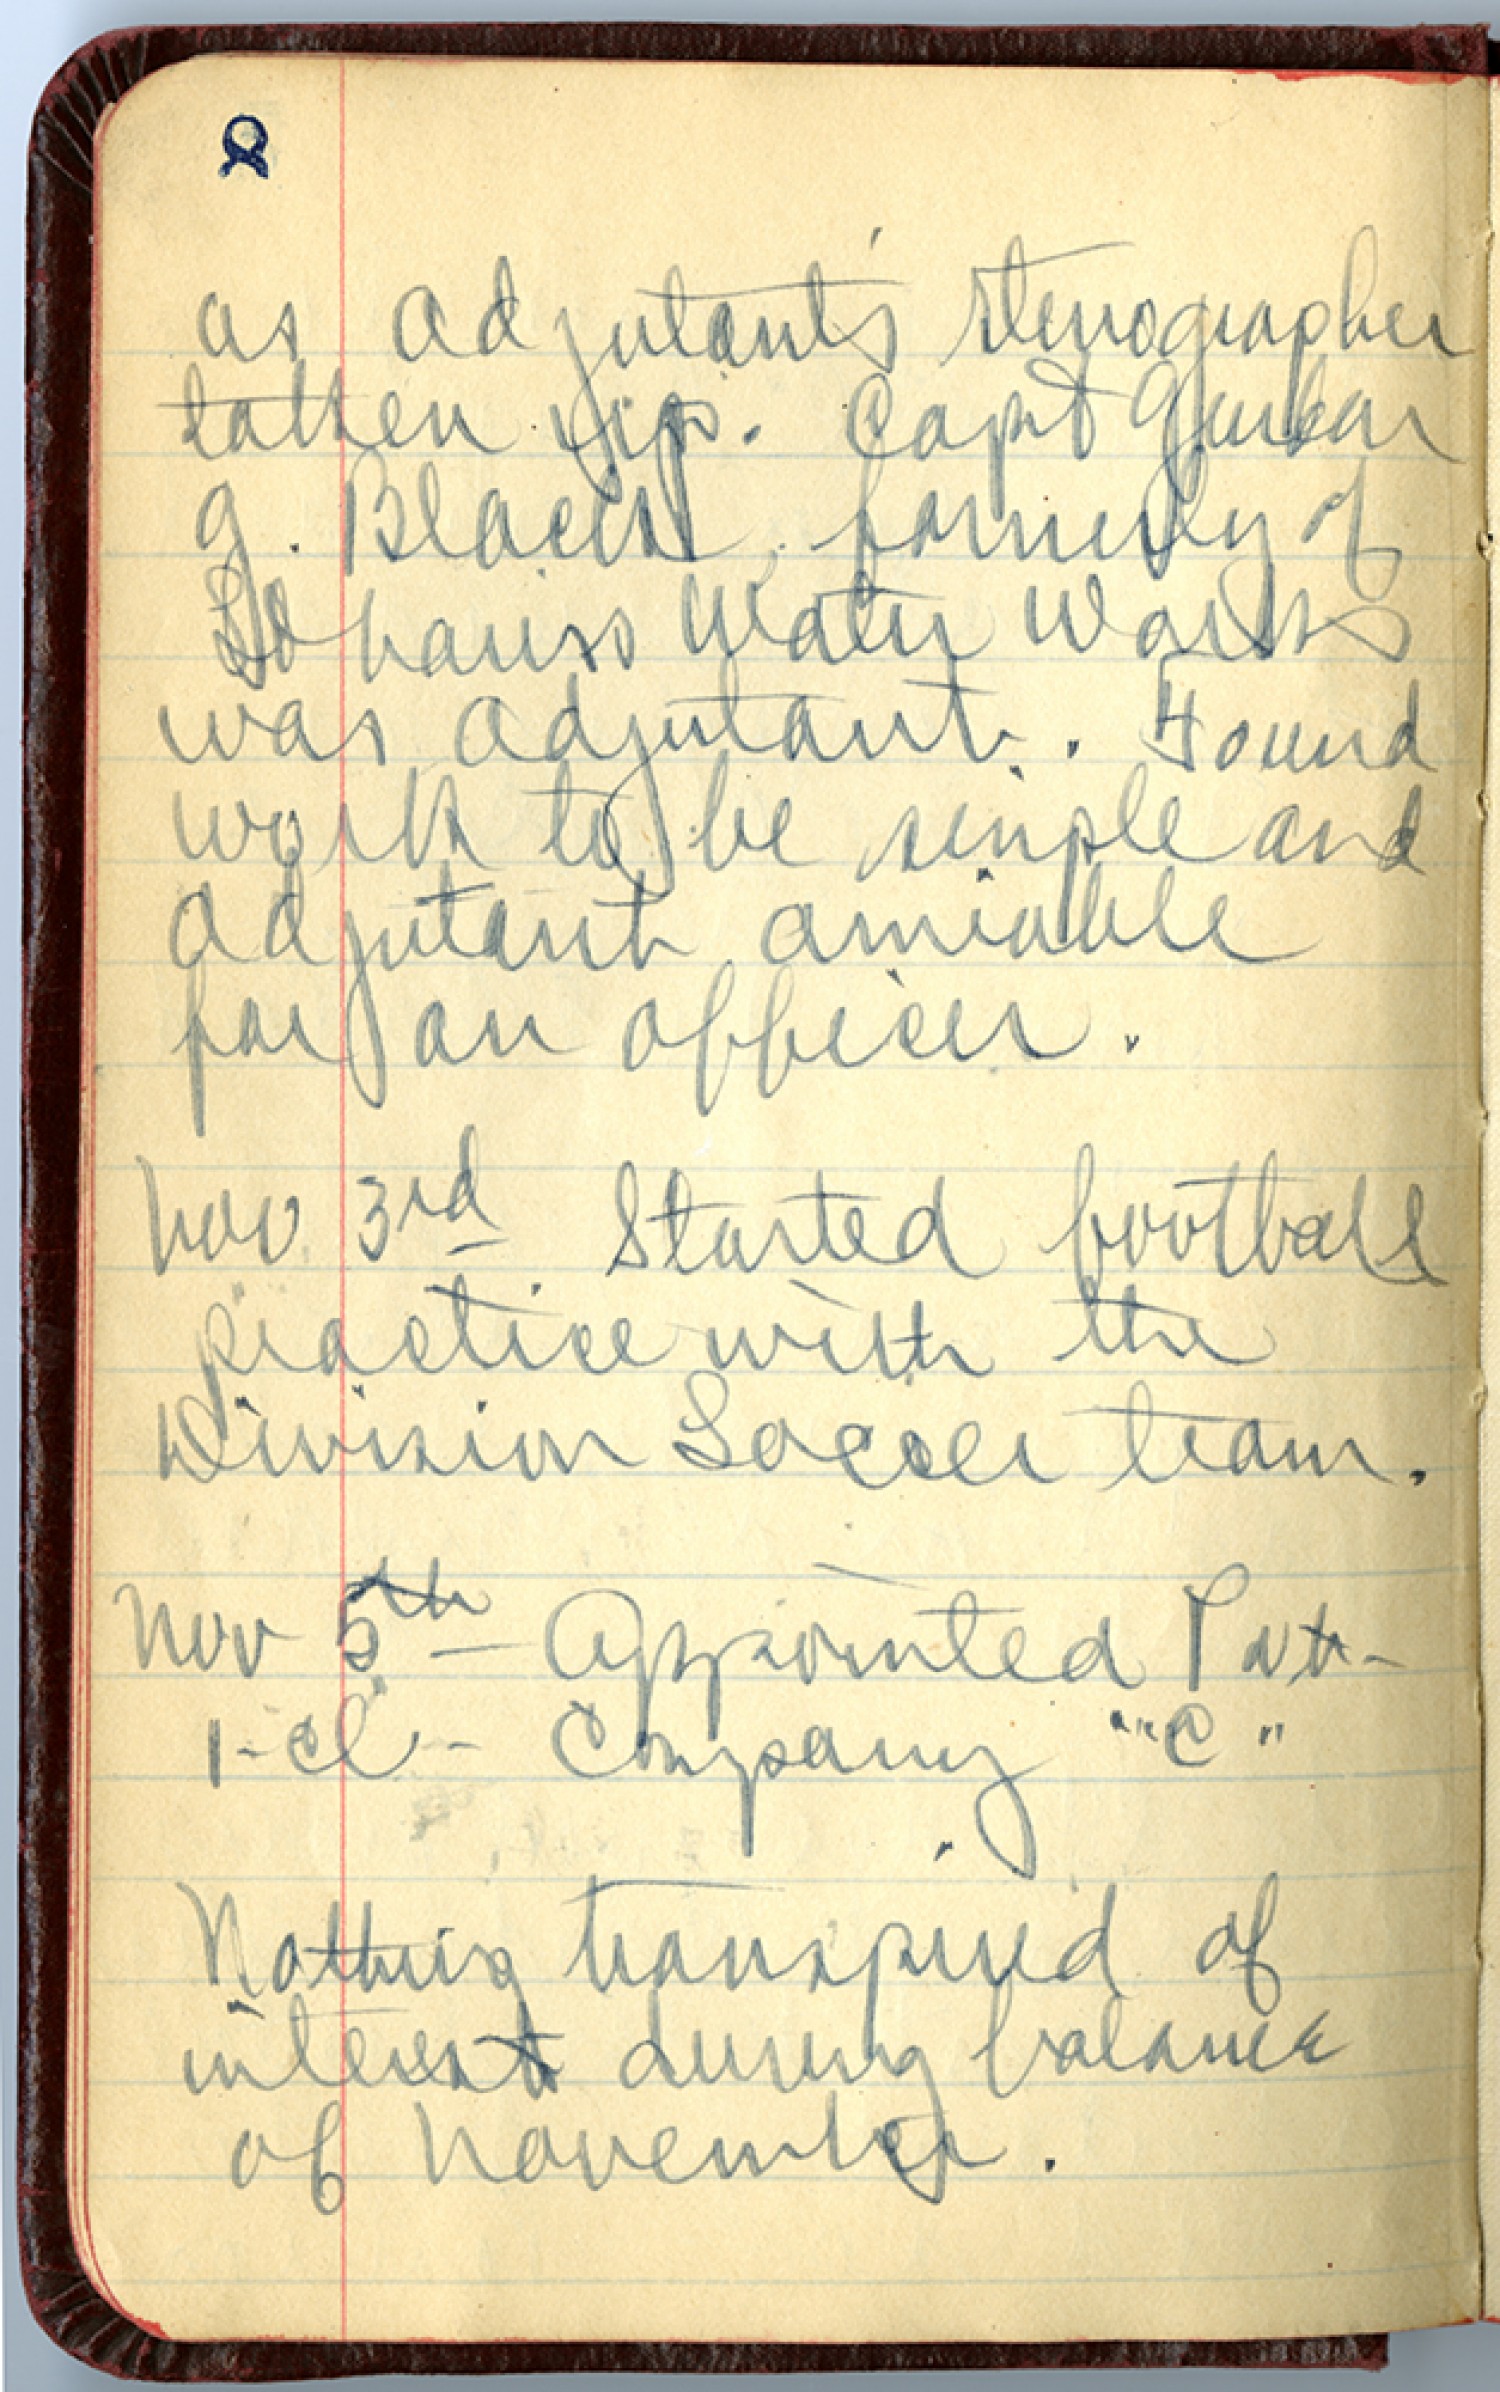 as adjutant's stenographer
taken up. Capt
G. Black, formerly of
St Louis Water Works
was adjutant. Found
work to be simple and
adjutant amiable
for an officer.
Nov 3rd Started football
practice with the
Division Soccer team.
Nov 5th - Appointed Pvt-
1-Cl- Company "C"
Nothing transpired of
interest during balance
of November.